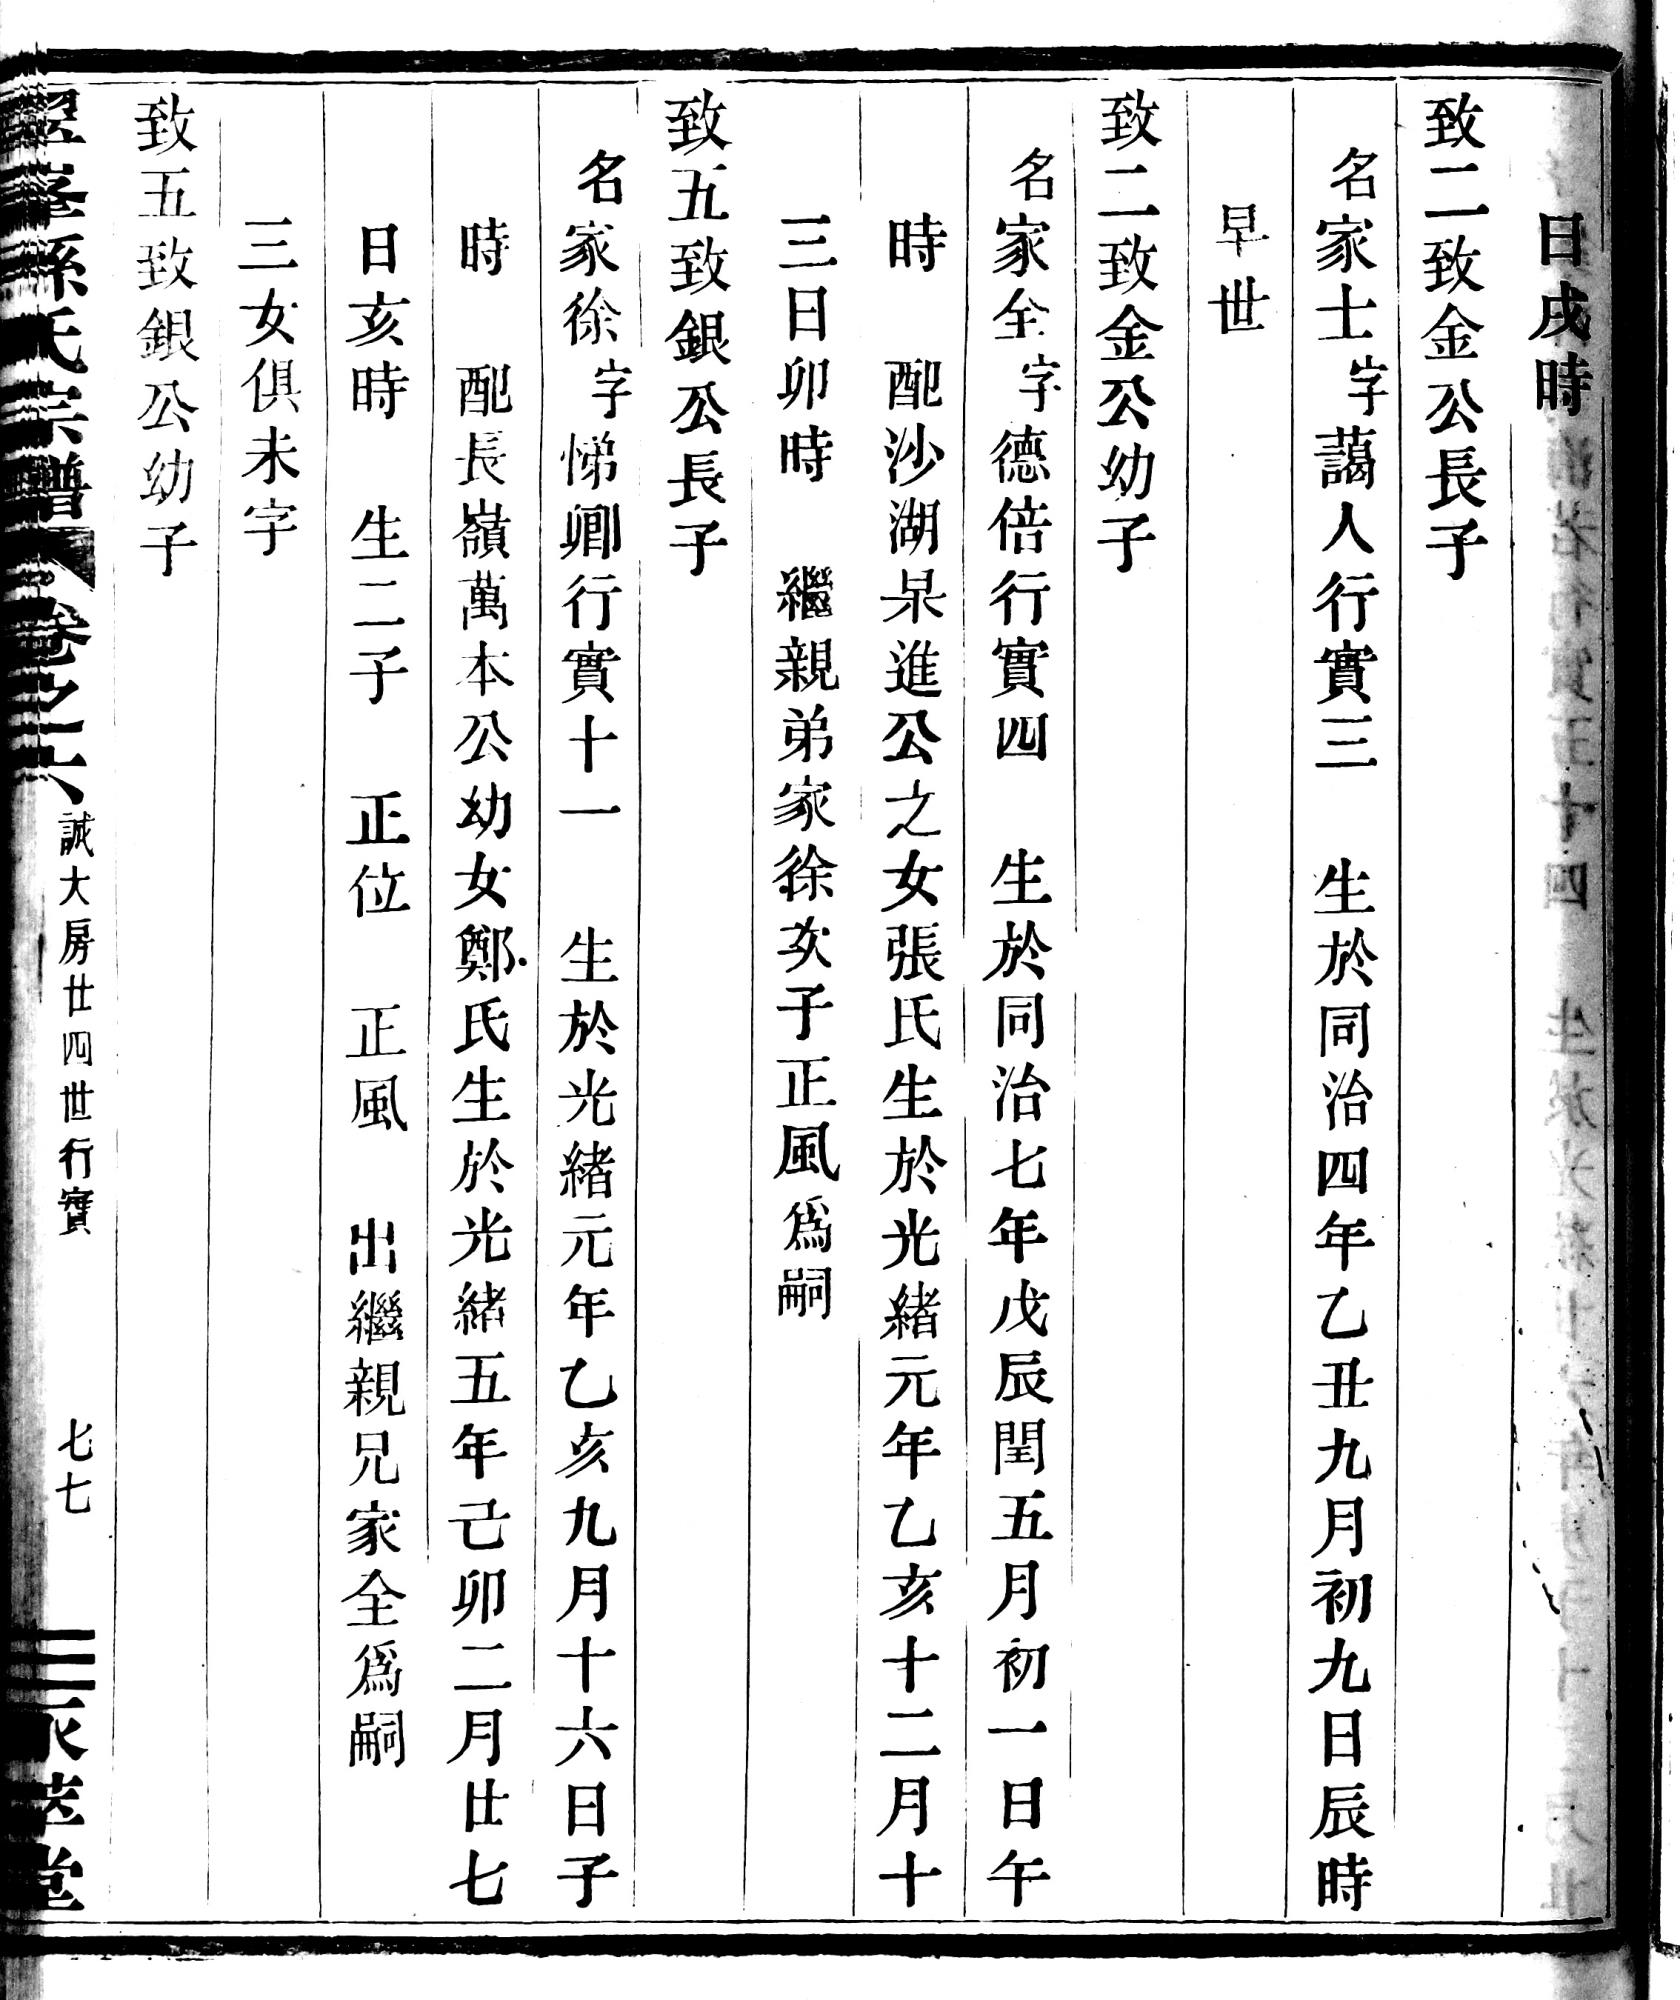 日戌時
致二致金公長子
名家士字藹人行實三　生於同治四年乙丑九月初九日辰時
早世
致二致金公幼子
名家全字德倍行實四　生於同治七年戊辰閏五月初一日午
時　配沙湖杲進公之女張氏生於光緒元年乙亥十二月十
三日卯時　繼親弟家徐次子正風爲嗣
致五致銀公長子
名家徐字悌卿行實十一　生於光緒元年乙亥九月十六日子
時　配長嶺萬本公幼女鄭氏生於光緒五年己卯二月廿七
日亥時　生二子　正位　正風　出繼親兄家全爲嗣
三女俱未字
致五致銀公幼子
孫氏宗譜　卷之六　誠大房廿四世行實　七七　堂